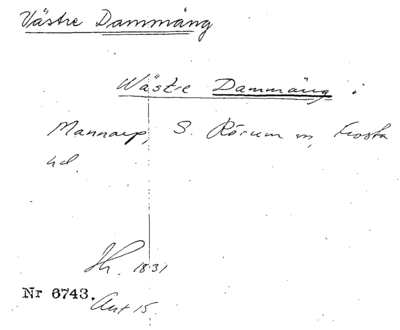 Västre Dammäng
Wästre Dammäng :
Mannarp, S. Rörum sn, Frosta
hd.
Sk. 1831
Nr 6743.
Akt 15.